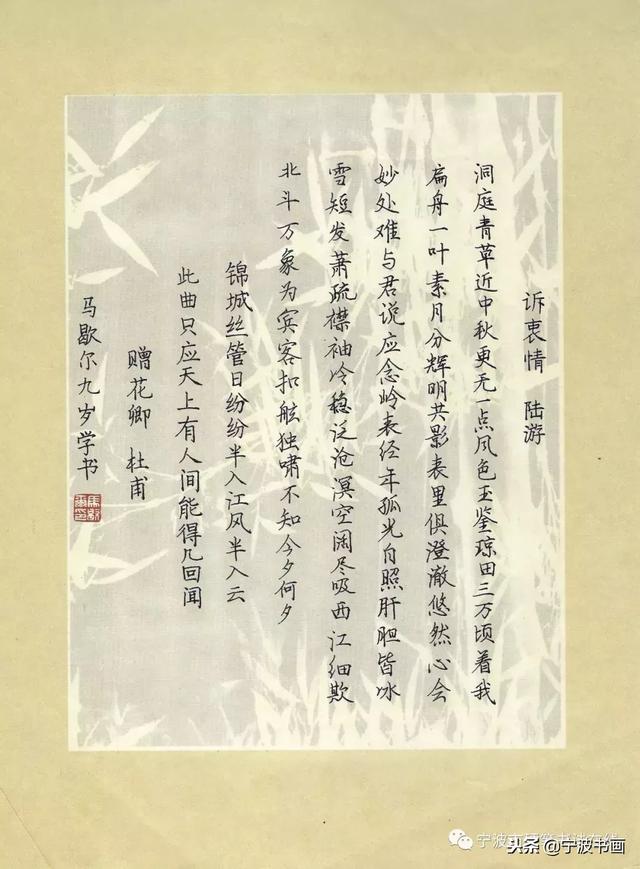 诉衷情 陆游
洞庭青草近中秋更无一点风色玉鉴琼田三万顷着我
扁舟一叶素月分辉明共影表里俱澄澈悠然心会
妙处难与君说应念岭表经年孤光自照肝胆皆冰
雪短发萧疏襟袖冷稳泛沧溟空阔尽吸西江细欺
北斗万象为宾客扣舷独啸不知今夕何夕
锦城丝管日纷纷半入江风半入云
此曲只应天上有人间能得几回闻
赠花卿 杜甫
马歇尔九岁学书
头条@宁波书画